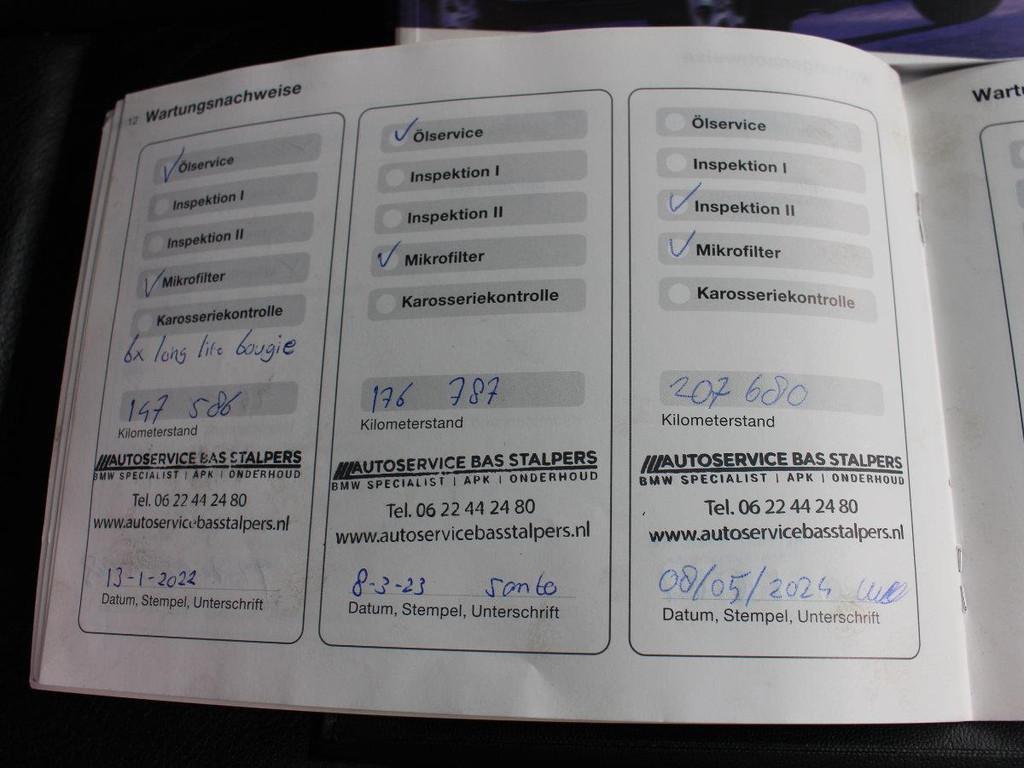 12 Wartungsnachweise
Ölservice
Inspektion I
Inspektion II
Mikrofilter
Karosseriekontrolle
6x long life bougie
147 586
Kilometerstand
AUTOSERVICE BAS STALPERS
BMW SPECIALIST | APK | ONDERHOUD
Tel. 06 22 44 24 80
www.autoservicebasstalpers.nl
13-1-2022
Datum, Stempel, Unterschrift
Ölservice
Inspektion I
Inspektion II
Mikrofilter
Karosseriekontrolle
176 787
Kilometerstand
AUTOSERVICE BAS STALPERS
BMW SPECIALIST | APK | ONDERHOUD
Tel. 06 22 44 24 80
www.autoservicebasstalpers.nl
8-3-23
Datum, Stempel, Unterschrift
Ölservice
Inspektion I
Inspektion II
Mikrofilter
Karosseriekontrolle
207 680
Kilometerstand
AUTOSERVICE BAS STALPERS
BMW SPECIALIST | APK | ONDERHOUD
Tel. 06 22 44 24 80
www.autoservicebasstalpers.nl
08/05/2024
Datum, Stempel, Unterschrift
Wartu